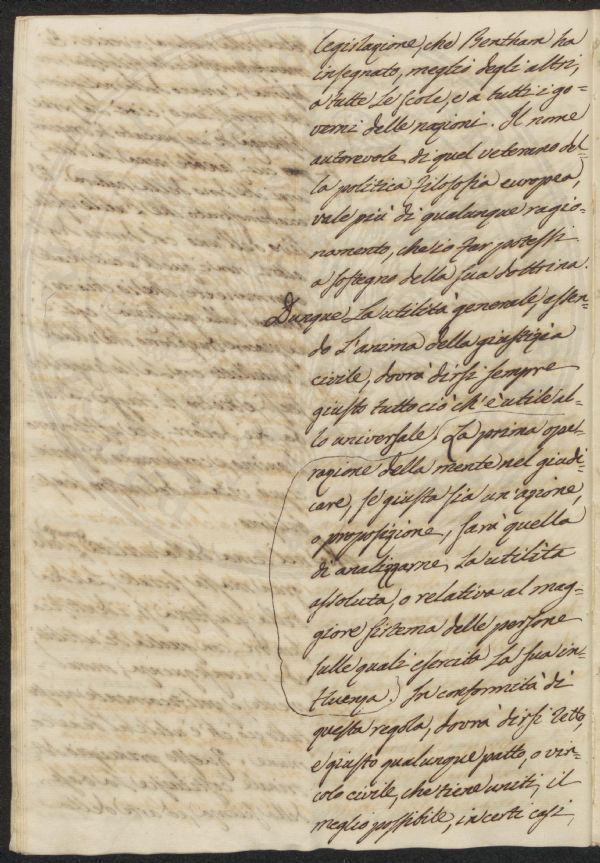 legislazione, che Bentham ha
insegnato, meglio degli altri,
a tutte le scole, e a tutti i go=
verni delle nazioni. Il nome
autorevole di quel veterano del=
la politica filosofia europea,
vale più di qualunque ragio=
namento, che io far potessi
a sostegno della sua dottrina.
Dunque la utilità generale essen=
do l'anima della giustizia
civile, dovrà dirsi sempre
giusto tutto ciò ch'è utile al=
lo universale. La prima ope=
razione della mente nel giudi=
care, se giusta sia un'azione,
o proposizione, sarà quella
di analizzarne la utilità
assoluta, o relativa al mag=
giore sistema delle persone
sulle quali esercita la sua in=
fluenza. In conformità di
questa regola, dovrà dirsi retto,
e giusto qualunque patto, o vin=
colo civile, che tiene uniti, il
meglio possibile, in certi casi,